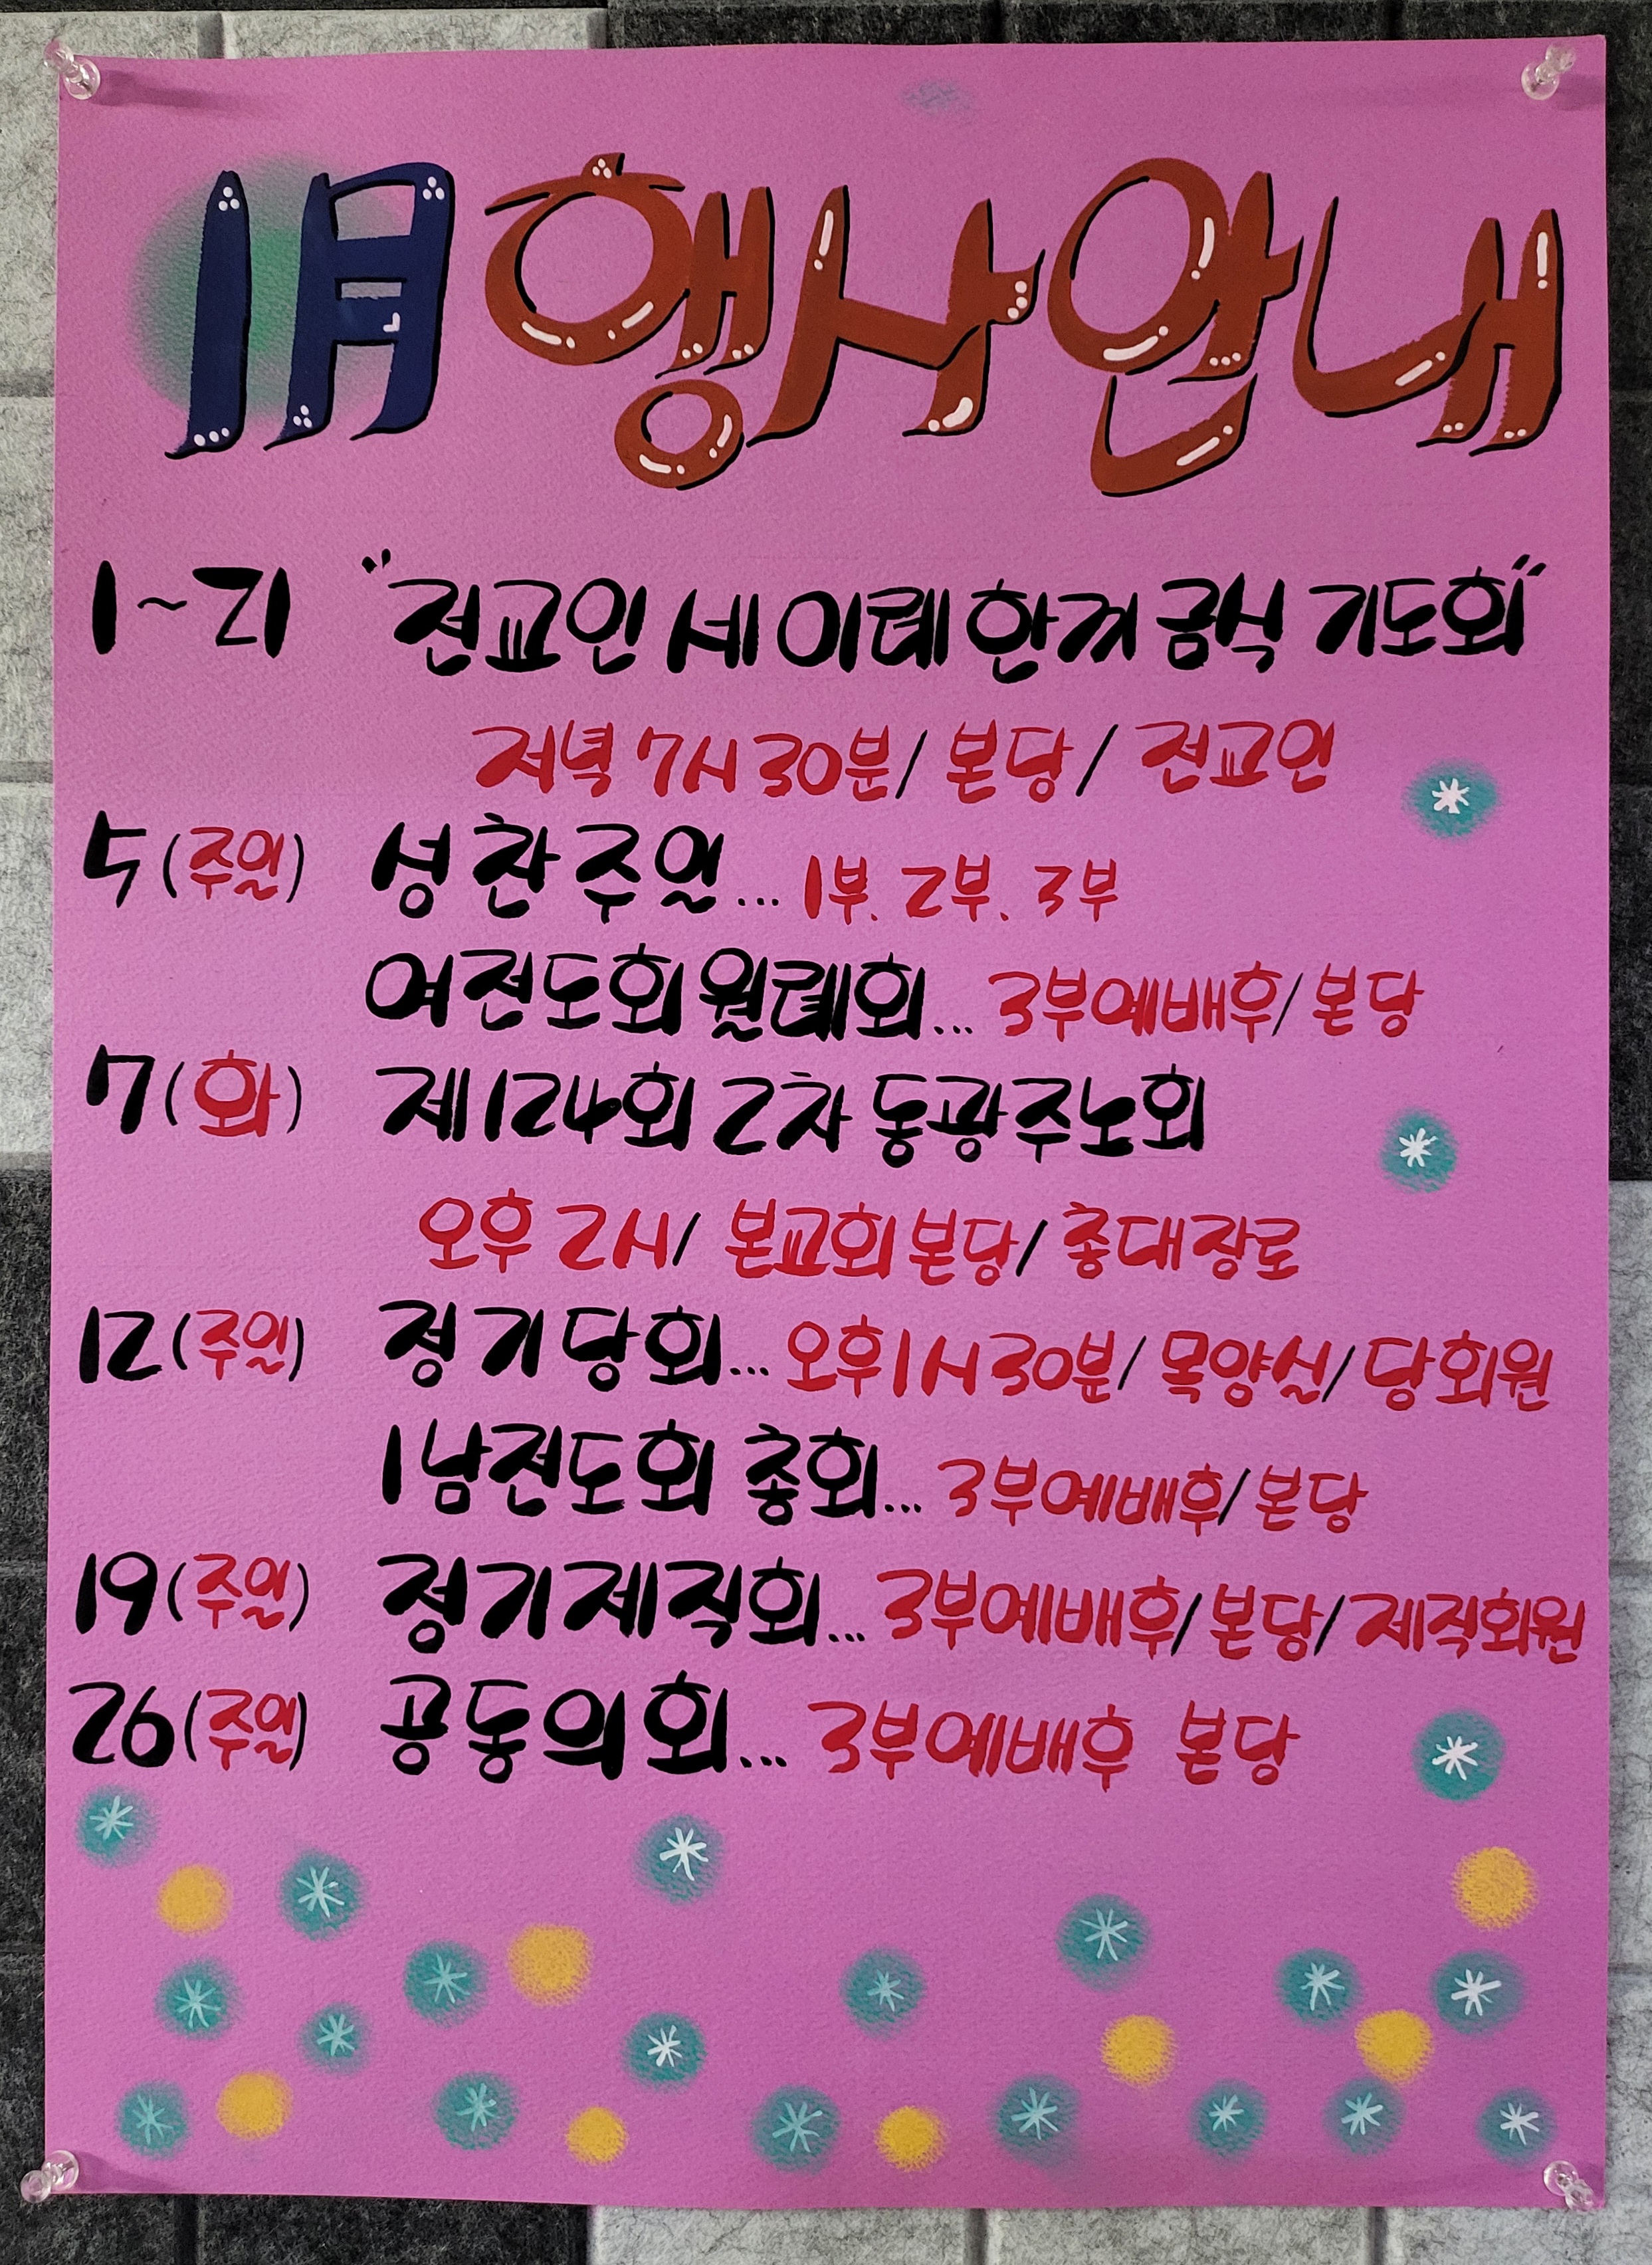 1月 행사안내
1~21 "전교인 세이레 한끼 금식 기도회"
저녁 7시 30분/ 본당/ 전교인
5(주일) 성찬주일... 1부. 2부. 3부
여전도회 월례회... 3부예배후/ 본당
7(화) 제124회 2차 동광주노회
오후 2시/ 본교회 본당/ 총대장로
12(주일) 정기당회... 오후1시30분/ 목양실/ 당회원
1남전도회 총회... 3부예배후/ 본당
19(주일) 정기제직회... 3부예배후/ 본당/ 제직회원
26(주일) 공동의회... 3부예배후 본당